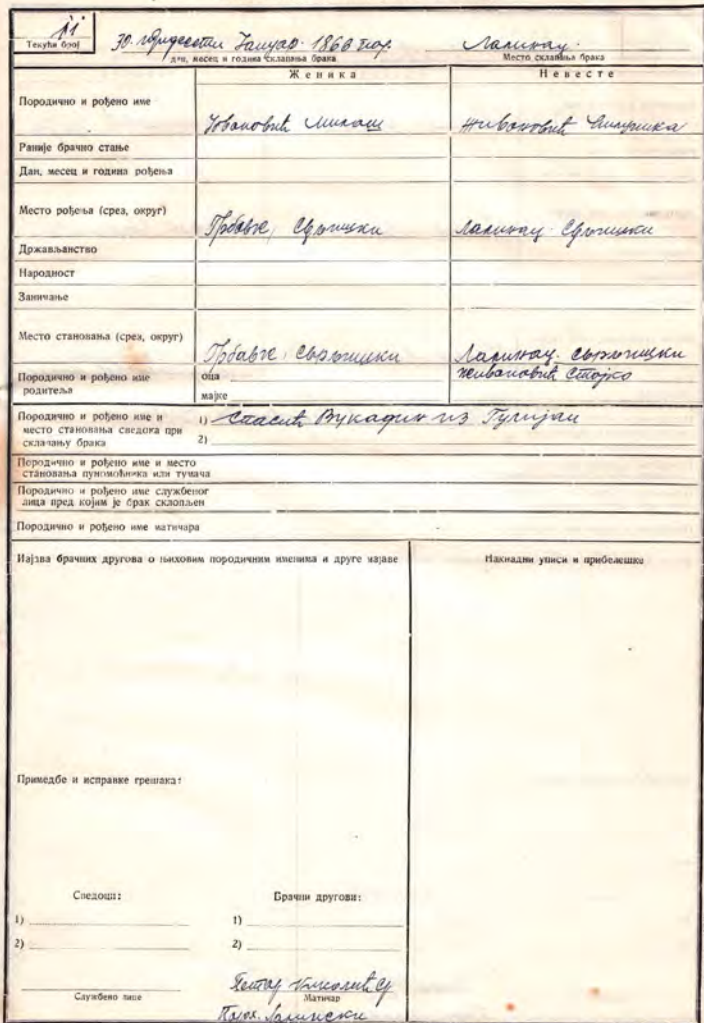 11
Текући број
30. тридесети Јануар 1866 год. Лалинац.
дан, месец и година склапања брака Место склапања брака
Женика Невесте
Породично и рођено име Јовановић Милош Живановић Милушка
Раније брачно стање
Дан, месец и година рођења
Место рођења (срез, округ) Грбавче, Сврљишки Лалинац Сврљишки
Држављанство
Народност
Заничање
Место становања (срез, округ) Грбавче, Сврљишки Лалинац. Сврљишки
Породично и рођено име родитеља оца Живановић Стојко
мајке
Породично и рођено име и 1) Спасић Вукадин из Гулијан
место становања сведока при
склапању брака 2)
Породично и рођено име и место
становања пуномоћника или тумача
Породично и рођено име службеног
лица пред којим је брак склопљен
Породично и рођено име матичара
Изјава брачних другова о њиховим породичним именима и друге изјаве
Накнадни уписи и прибелешке
Примедбе и исправке грешака:
Сведоци: Брачни другови:
1) 1)
2) 2)
Петар
Службено лице Матичар
Парох. Лалински